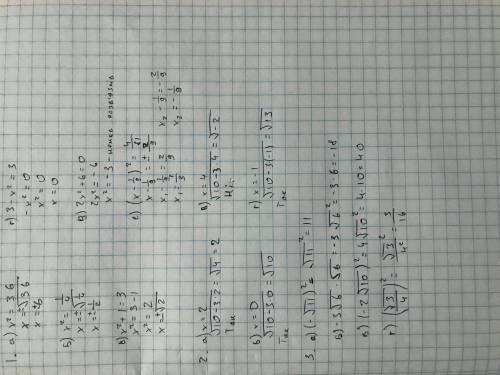 1. а) x² = 36
x = ±√36
x = ±6
Б) x² = 1/4
x = ±√1/4
x = ±1/2
в) x² + 1 = 3
x² = 3 - 1
x² = 2
x = ±√2
г) 3 - x² = 3
-x² = 0
x² = 0
x = 0
д) 2x² + 6 = 0
2x² = -6
x² = -3 - немає розв'язків
е) (x - 1/9)² = 4/81
x - 1/9 = ± 2/9
x₁ - 1/9 = 2/9 x₂ - 1/9 = -2/9
x₁ = 1/3 x₂ = -1/9
2. а) x = 2
√10-3·2 = √4 = 2
Так
б) x = 0
√10-3·0 = √10
Так
в) x = 4
√10-3·4 = √-2
Ні.
г) x = -1
√10-3(-1) = √13
Так
3. а) (-√11)² = √11² = 11
Б) -3√6 · √6 = -3√6² = -3·6 = -18
в) (-2√10)² = 4√10² = 4·10 = 40
г) (√3/4)² = √3²/4² = 3/16